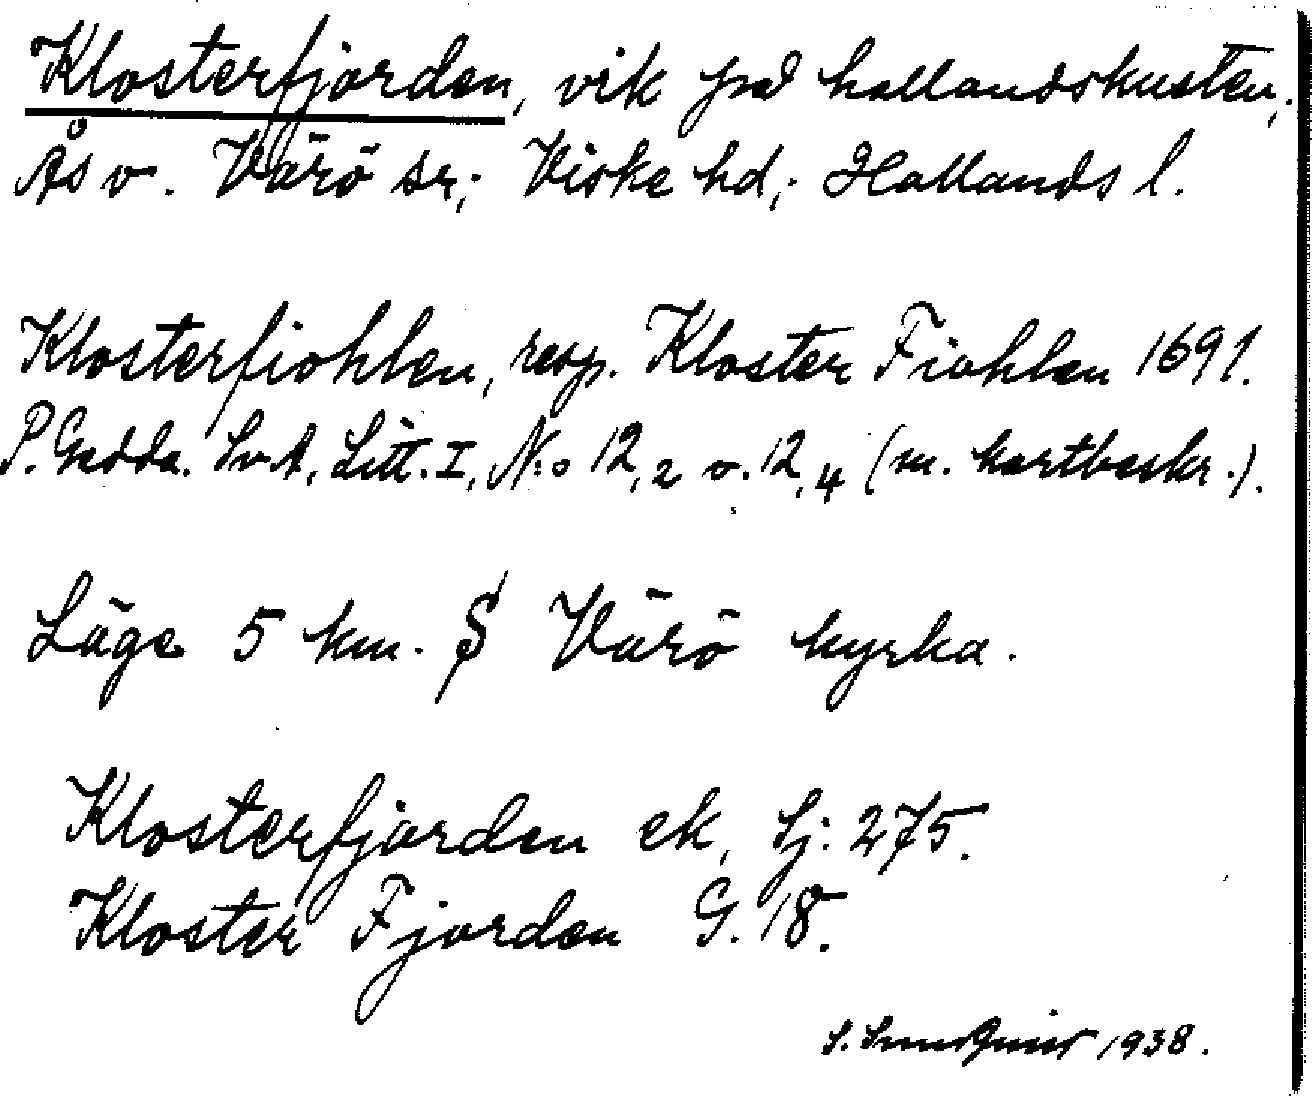 Klosterfjorden, vik på hallandskusten,
Ås o. Värö sn; Viske hd; Hallands l.
Klosterfiohlen, resp. Kloster Fiohlen 1691.
P. Gedda. SvA, Litt. I, N:o 12,2 o. 12,4 (m. kartbeskr.).
Läge 5 km. S Värö kyrka.
Klosterfjorden ek, Sj: 275.
Kloster Fjorden G. 18.
S. 1938.